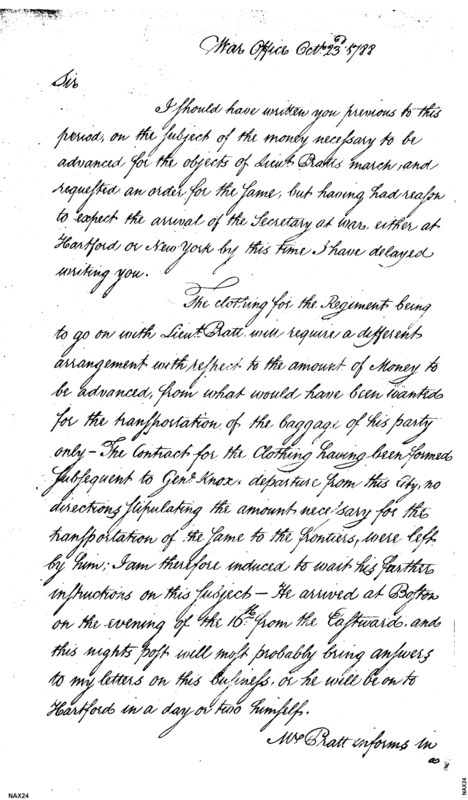 War Office Octr. 23d. 1788
Sir
I should have written you previous to this
period, on the subject of the money necessary to be
advanced for the objects of Lieut. Pratts march, and
requested an order for the same, but having had reason
to expect the arrival of the Secretary at war, either at
Hartford or New York by this time I have delayed
writing you.
The clothing for the Regiment being
to go on with Lieut. Pratt will require a different
arrangement with respect to the amount of Money to
be advanced, from what would have been wanted
for the transportation of the baggage of his party
only — The Contract for the Clothing having been formed
subsequent to Genl. Knox, departure from this City, no
directions stipulating the amount necessary for the
transportation of the same to the frontiers, were left
by him; I am therefore induced to wait his farther
instructions on this subject — He arrived at Boston
on the evening of the 16th. from the Eastward, and
this nights post will most probably bring answers
to my letters on this business, or he will be on to
Hartford in a day or two himself.
Mr. Pratt informs in
NAX24
NAX24